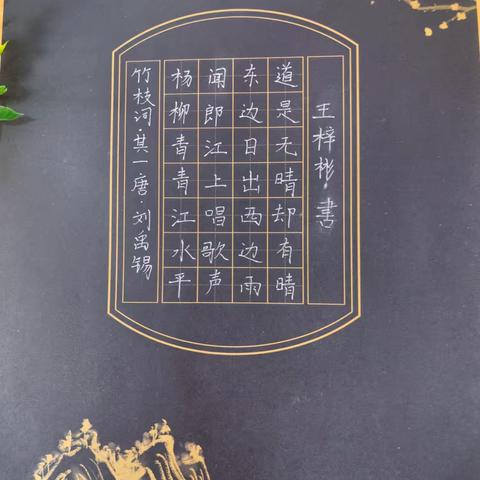 竹枝词·其一唐·刘禹锡
杨柳青青江水平
闻郎江上唱歌声
东边日出西边雨
道是无晴却有晴
王梓彬·書